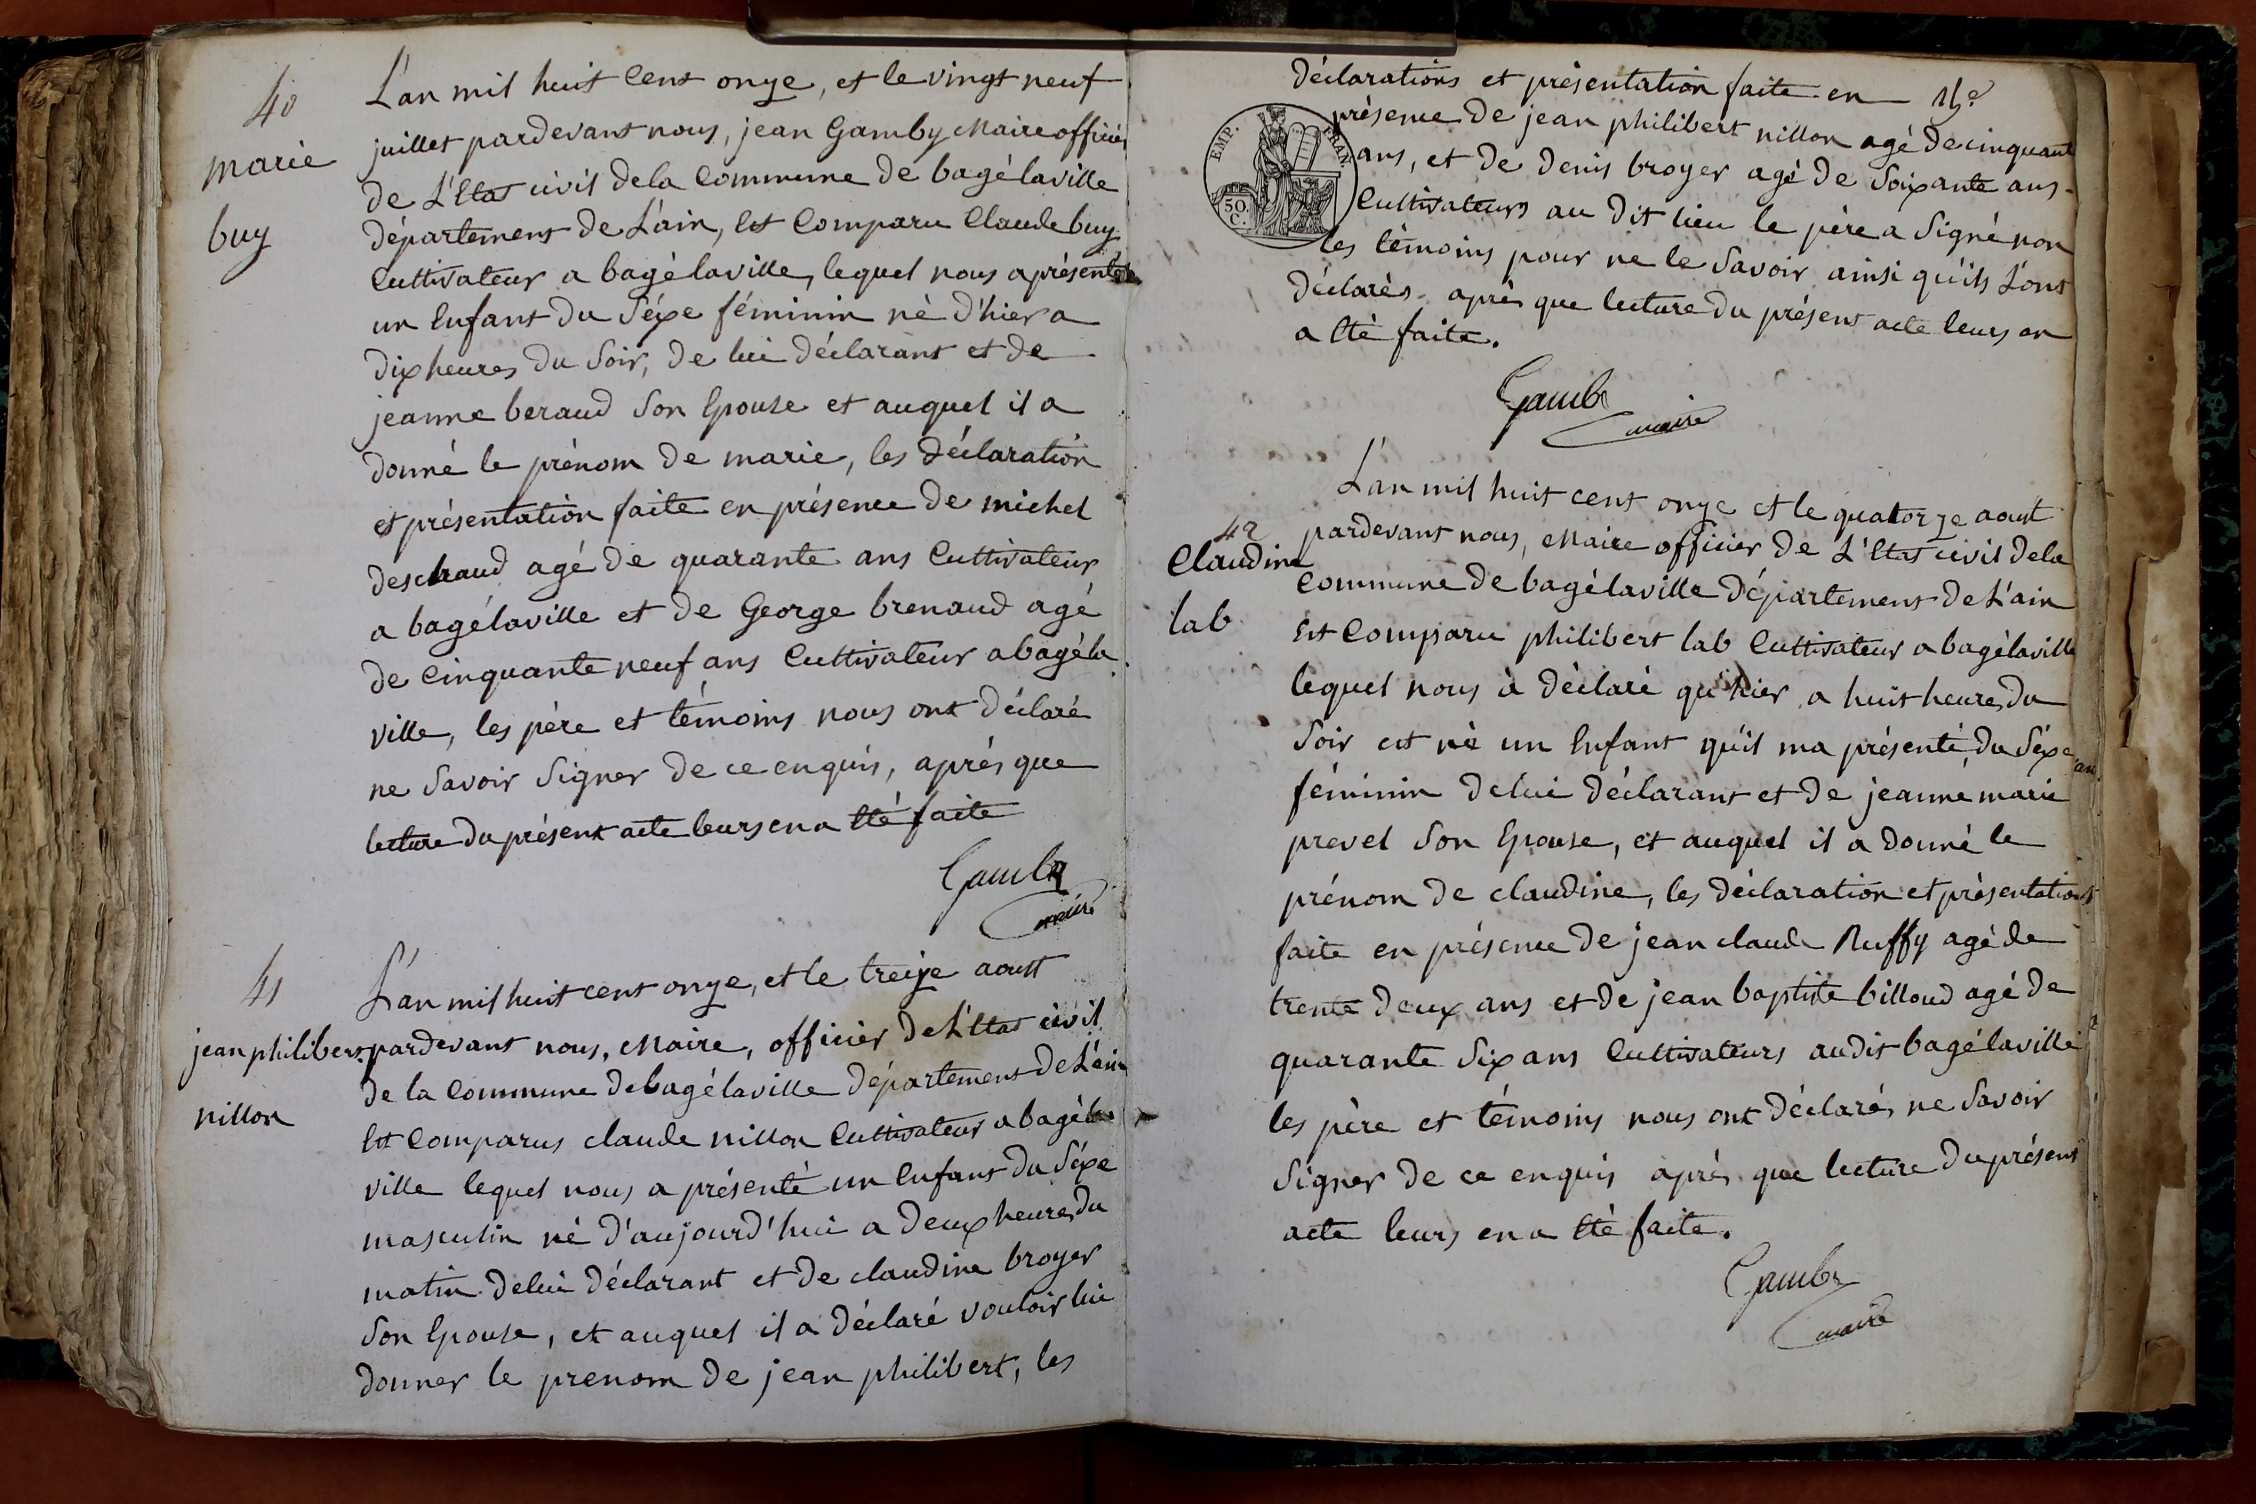 40
marie
buy
L'an mil huit cent onze, et le vingt neuf
juillet pardevant nous, jean Gamby Maire officier
de L'Etat civil dela Commune de bagélaville
département de L'ain, Est Comparu Claude buy
Cultivateur a bagélaville, lequel nous a présenté
un Enfant du Séxe féminin né d'hier a
dix heures du Soir, de lui déclarant et de
jeanne beraud Son Epouse et auquel il a
donné le prénom de marie, les déclaration
et présentation faite en présence de michel
deschaud agé de quarante ans Cultivateur
a bagélaville et de George brenaud agé
de Cinquante neuf ans Cultivateur a bagéla
ville, les père et témoins nous ont déclaré
ne Savoir Signer de ce enquis, après que
lecture du présent acte leurs en a Eté faite
Gamby
maire
41
jean philibert
nillon
L'an mil huit cent onze, et le treize aoust
pardevant nous, Maire, officier de L'Etat civil
de la Commune de bagélaville département de L'ain
Est Comparus claude nillon Cultivateur a bagéla
ville lequel nous a présenté un Enfant du Séxe
masculin né d'aujourd'hui a deux heures du
matin de lui déclarant et de claudine broyer
Son Epouse, et auquel il a déclaré vouloir lui
donner le prenom de jean philibert, les
déclarations et présentation faite en
présence de jean philibert nillon agé de cinquante
ans, et de denis broyer agé de Soixante ans
Cultivateurs au dit lieu le père a Signé non
les témoins pour ne le Savoir ainsi qu'ils L'ont
déclarés après que lecture du présent acte leurs en
a Eté faite.
EMP. FRAN.
50.
C.
Gamby
maire
42
Claudine
lab
L'an mil huit cent onze et le quatorze aoust
pardevant nous, Maire officier de L'Etat civil dela
Commune de bagélaville département de L'ain
Est Comparu philibert lab Cultivateur a bagélaville
lequel nous à déclaré qu'hier a huit heures du
Soir est né un Enfant qu'il ma présenté, du Séxe
féminin de lui déclarant et de jeanne marie
prevel Son Epouse, et auquel il a donné le
prénom de claudine, les déclaration et présentations
faite en présence de jean claude Ruffy agé de
trente deux ans et de jean baptiste billoud agé de
quarante Six ans Cultivateurs audit bagélaville
les père et témoins nous ont déclarés ne Savoir
Signer de ce enquis après que lecture du présent
acte leurs en a Eté faite.
Gamby
maire